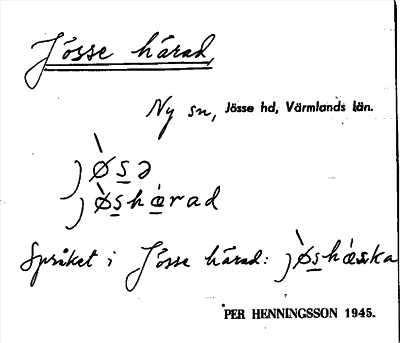 Jösse härad,
Ny sn, Jösse hd, Värmlands län.
jø̀s̲ə
jø̀s̲hæ̲rad
Språket i Jösse härad: jø̀s̲hæska
PER HENNINGSSON 1945.